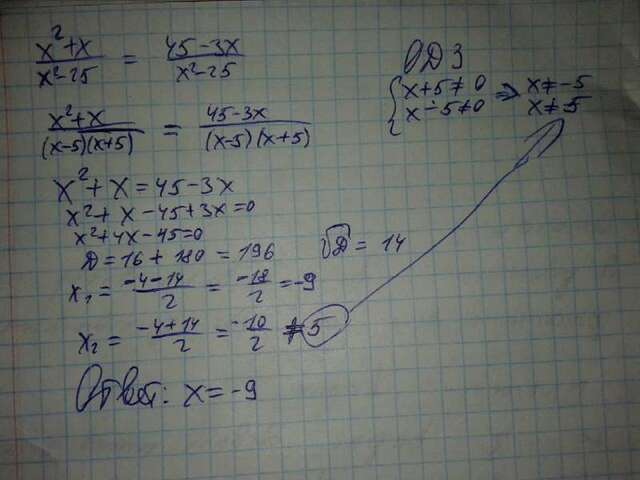 x²+x / x²-25 = 45-3x / x²-25
ОДЗ
{ x+5≠0 ⇒ x≠-5
x-5≠0 x≠5
x²+x / (x-5)(x+5) = 45-3x / (x-5)(x+5)
x²+x=45-3x
x²+x-45+3x=0
x²+4x-45=0
D=16+180=196 √D=14
x₁= -4-14 / 2 = -18 / 2 =-9
x₂= -4+14 / 2 = -10 / 2 ≠5
Ответ: x=-9